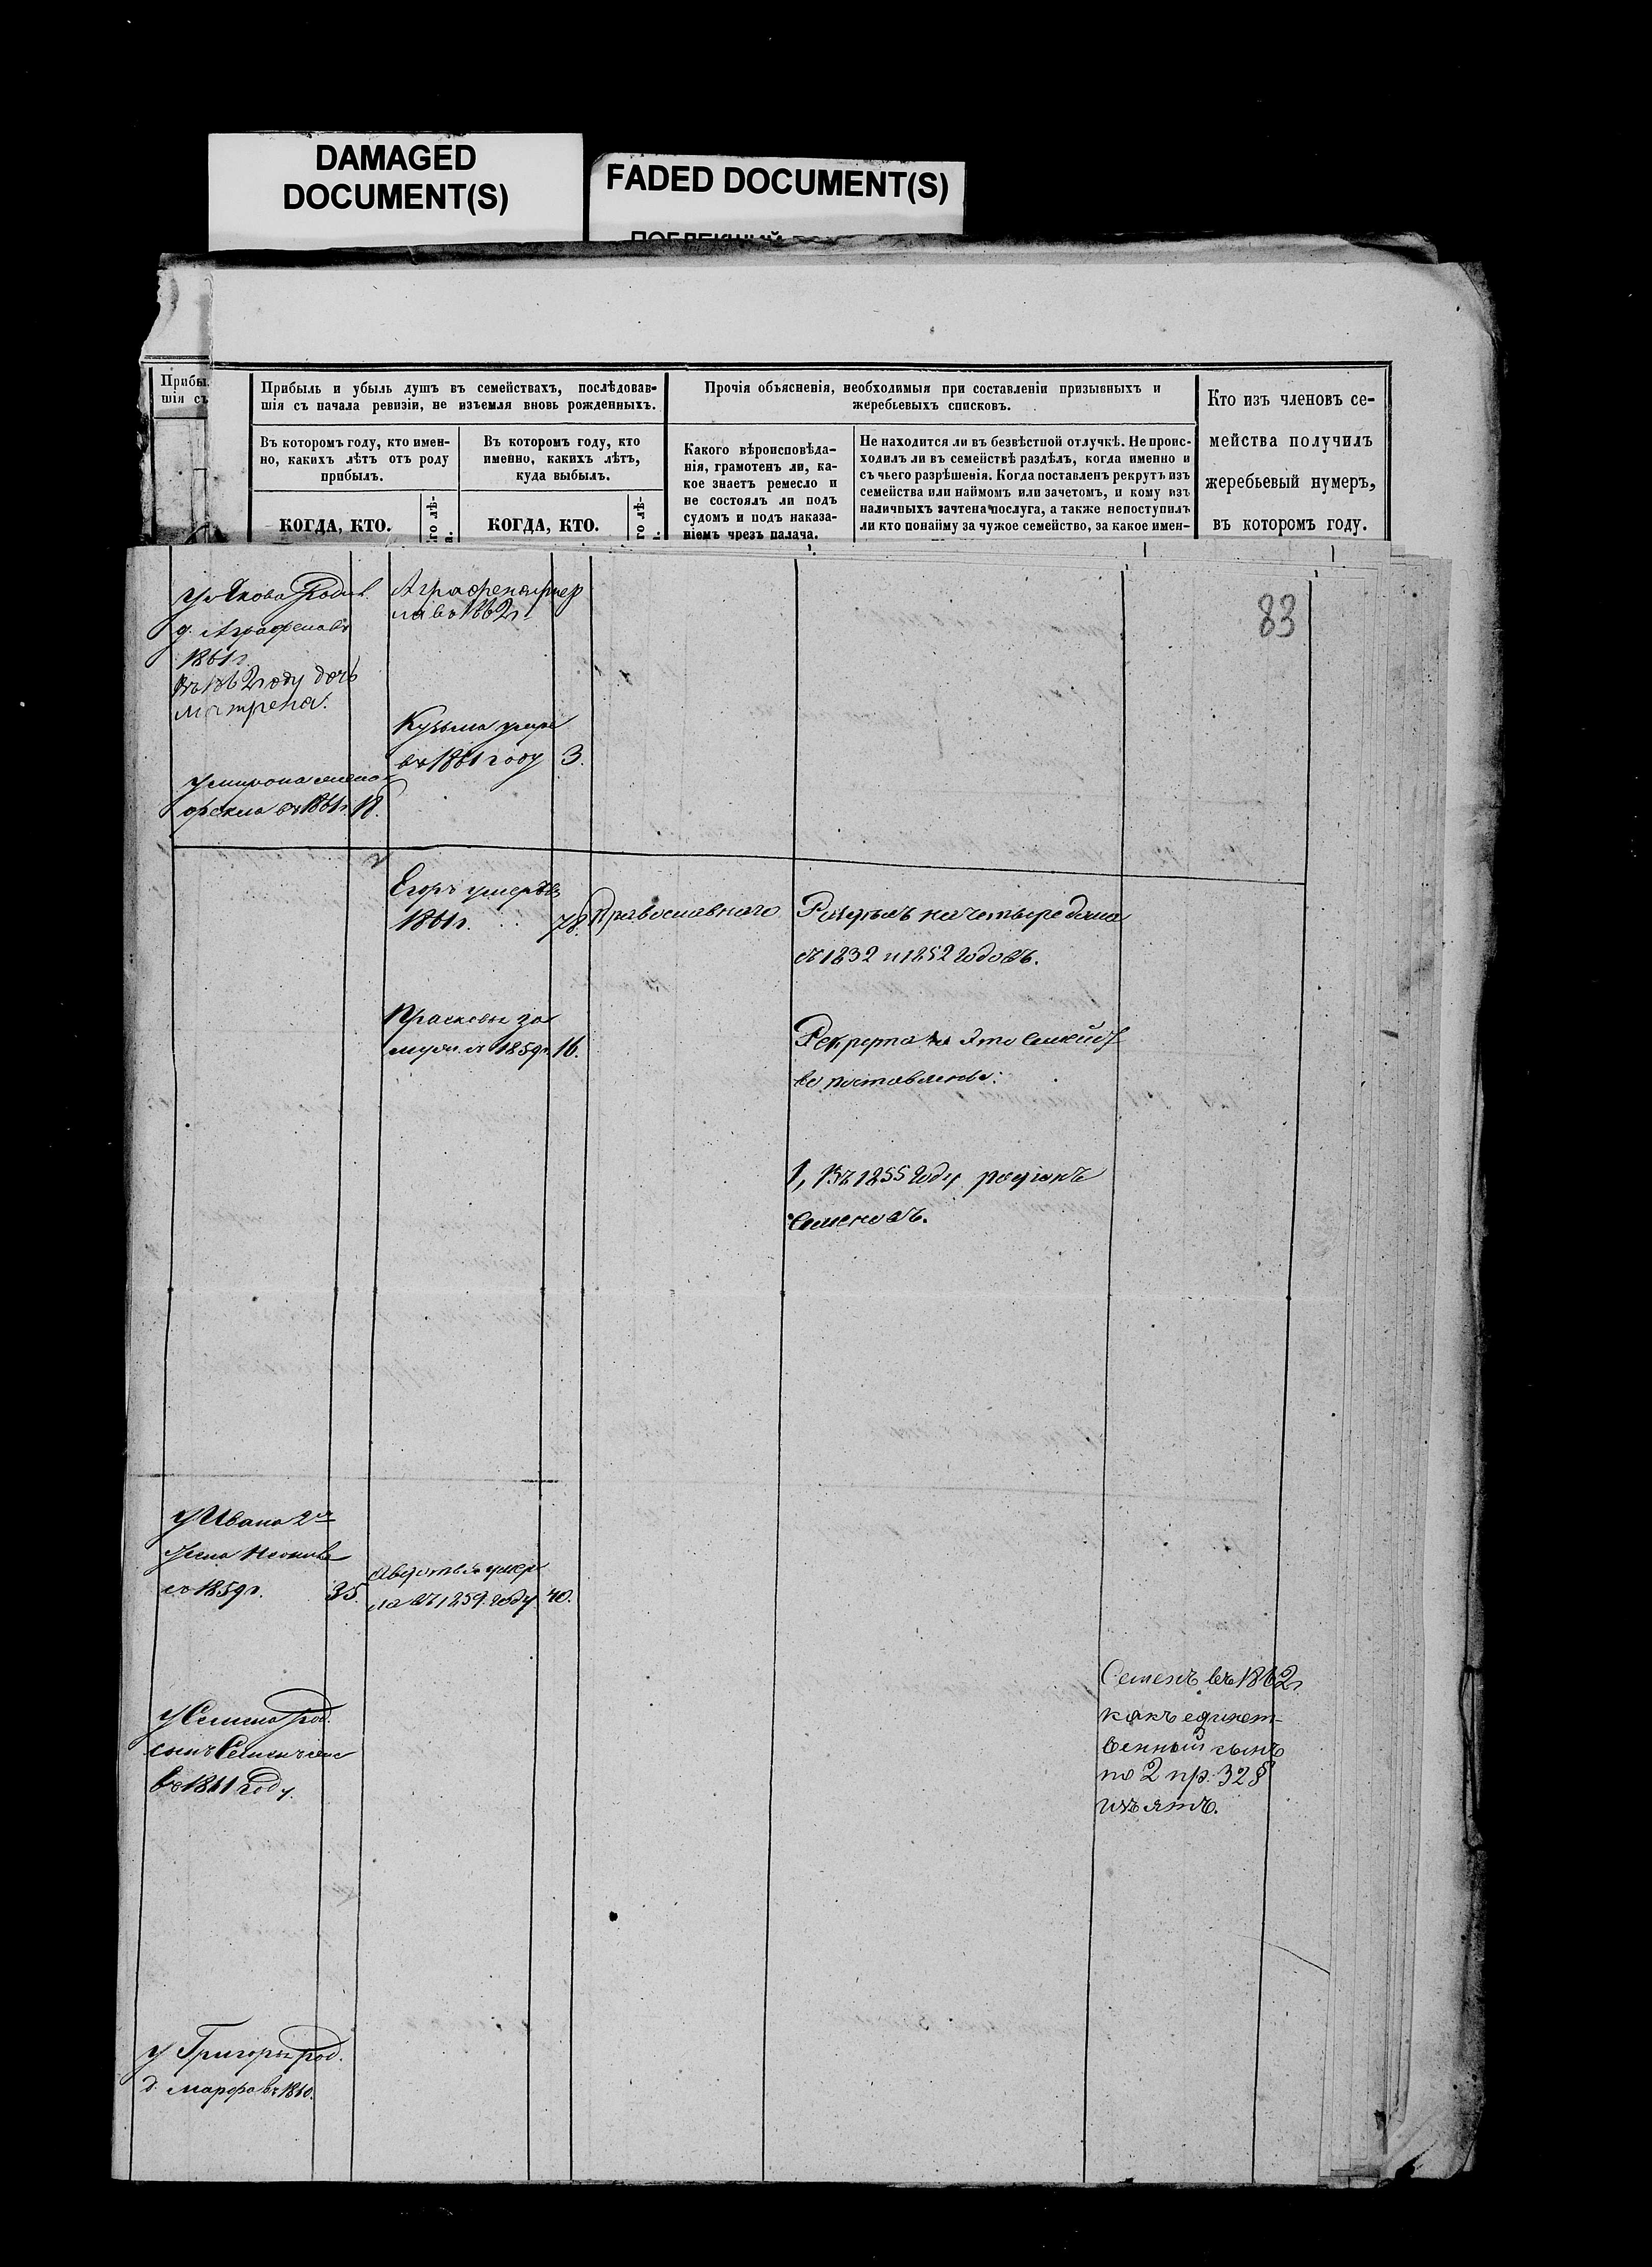 DAMAGED
DOCUMENT(S)
FADED DOCUMENT(S)
Прибы
шія съ
Прибыль и убыль душъ въ семействахъ, послѣдовав-
шія съ начала ревизіи, не изъемля вновь рожденныхъ.
Въ которомъ году, кто имен-
но, какихъ лѣтъ отъ роду
прибылъ.
КОГДА, КТО.
го лѣ-
а.
Въ которомъ году, кто
именно, какихъ лѣтъ,
куда выбылъ.
КОГДА, КТО.
го лѣ-
Прочія объясненія, необходимыя при составленіи призывныхъ и
жеребьевыхъ списковъ.
Какого вѣроисповѣда-
нія, грамотенъ ли, ка-
кое знаетъ ремесло и
не состоялъ ли подъ
судомъ и подъ наказа-
ніемъ чрезъ палача.
Не находится ли въ безвѣстной отлучкѣ. Не проис-
ходилъ ли въ семействѣ раздѣлъ, когда именно и
съ чьего разрѣшенія. Когда поставленъ рекрутъ изъ
семейства или наймомъ или зачетомъ, и кому изъ
наличныхъ зачтена послуга, а также непоступилъ
ли кто понайму за чужое семейство, за какое имен-
Кто изъ членовъ се-
мейства получилъ
жеребьевый нумеръ,
въ которомъ году.
83
у Якова Родил.
д. Аграфена въ
1861г.
Въ 1862 году дочь
Матрена.
Аграфена умер
ла въ 1862г.
Кузьма умре
въ 1861 году 3.
у Мирона жена
въ 1861г. 18.
Егоръ умеръ въ
1861г. 78.
Православнаго
на четыре дома
въ 1832 и 1852 годовъ.
Прасковья за
муж. въ 1859г. 16.
это семейст
во поставлены:
1, Въ 1855 году
Семеновъ.
у Ивана 2я
жена
въ 1859г. 35.
Авдотья умер
ла въ 1859 году 40.
Семенъ въ 1862г.
какъ единст-
венный сынъ
по 2 пр. 32 §
изъятъ.
у Семена род.
сынъ
въ 1861 году.
у Григорья род.
д. Марфа въ 1860.